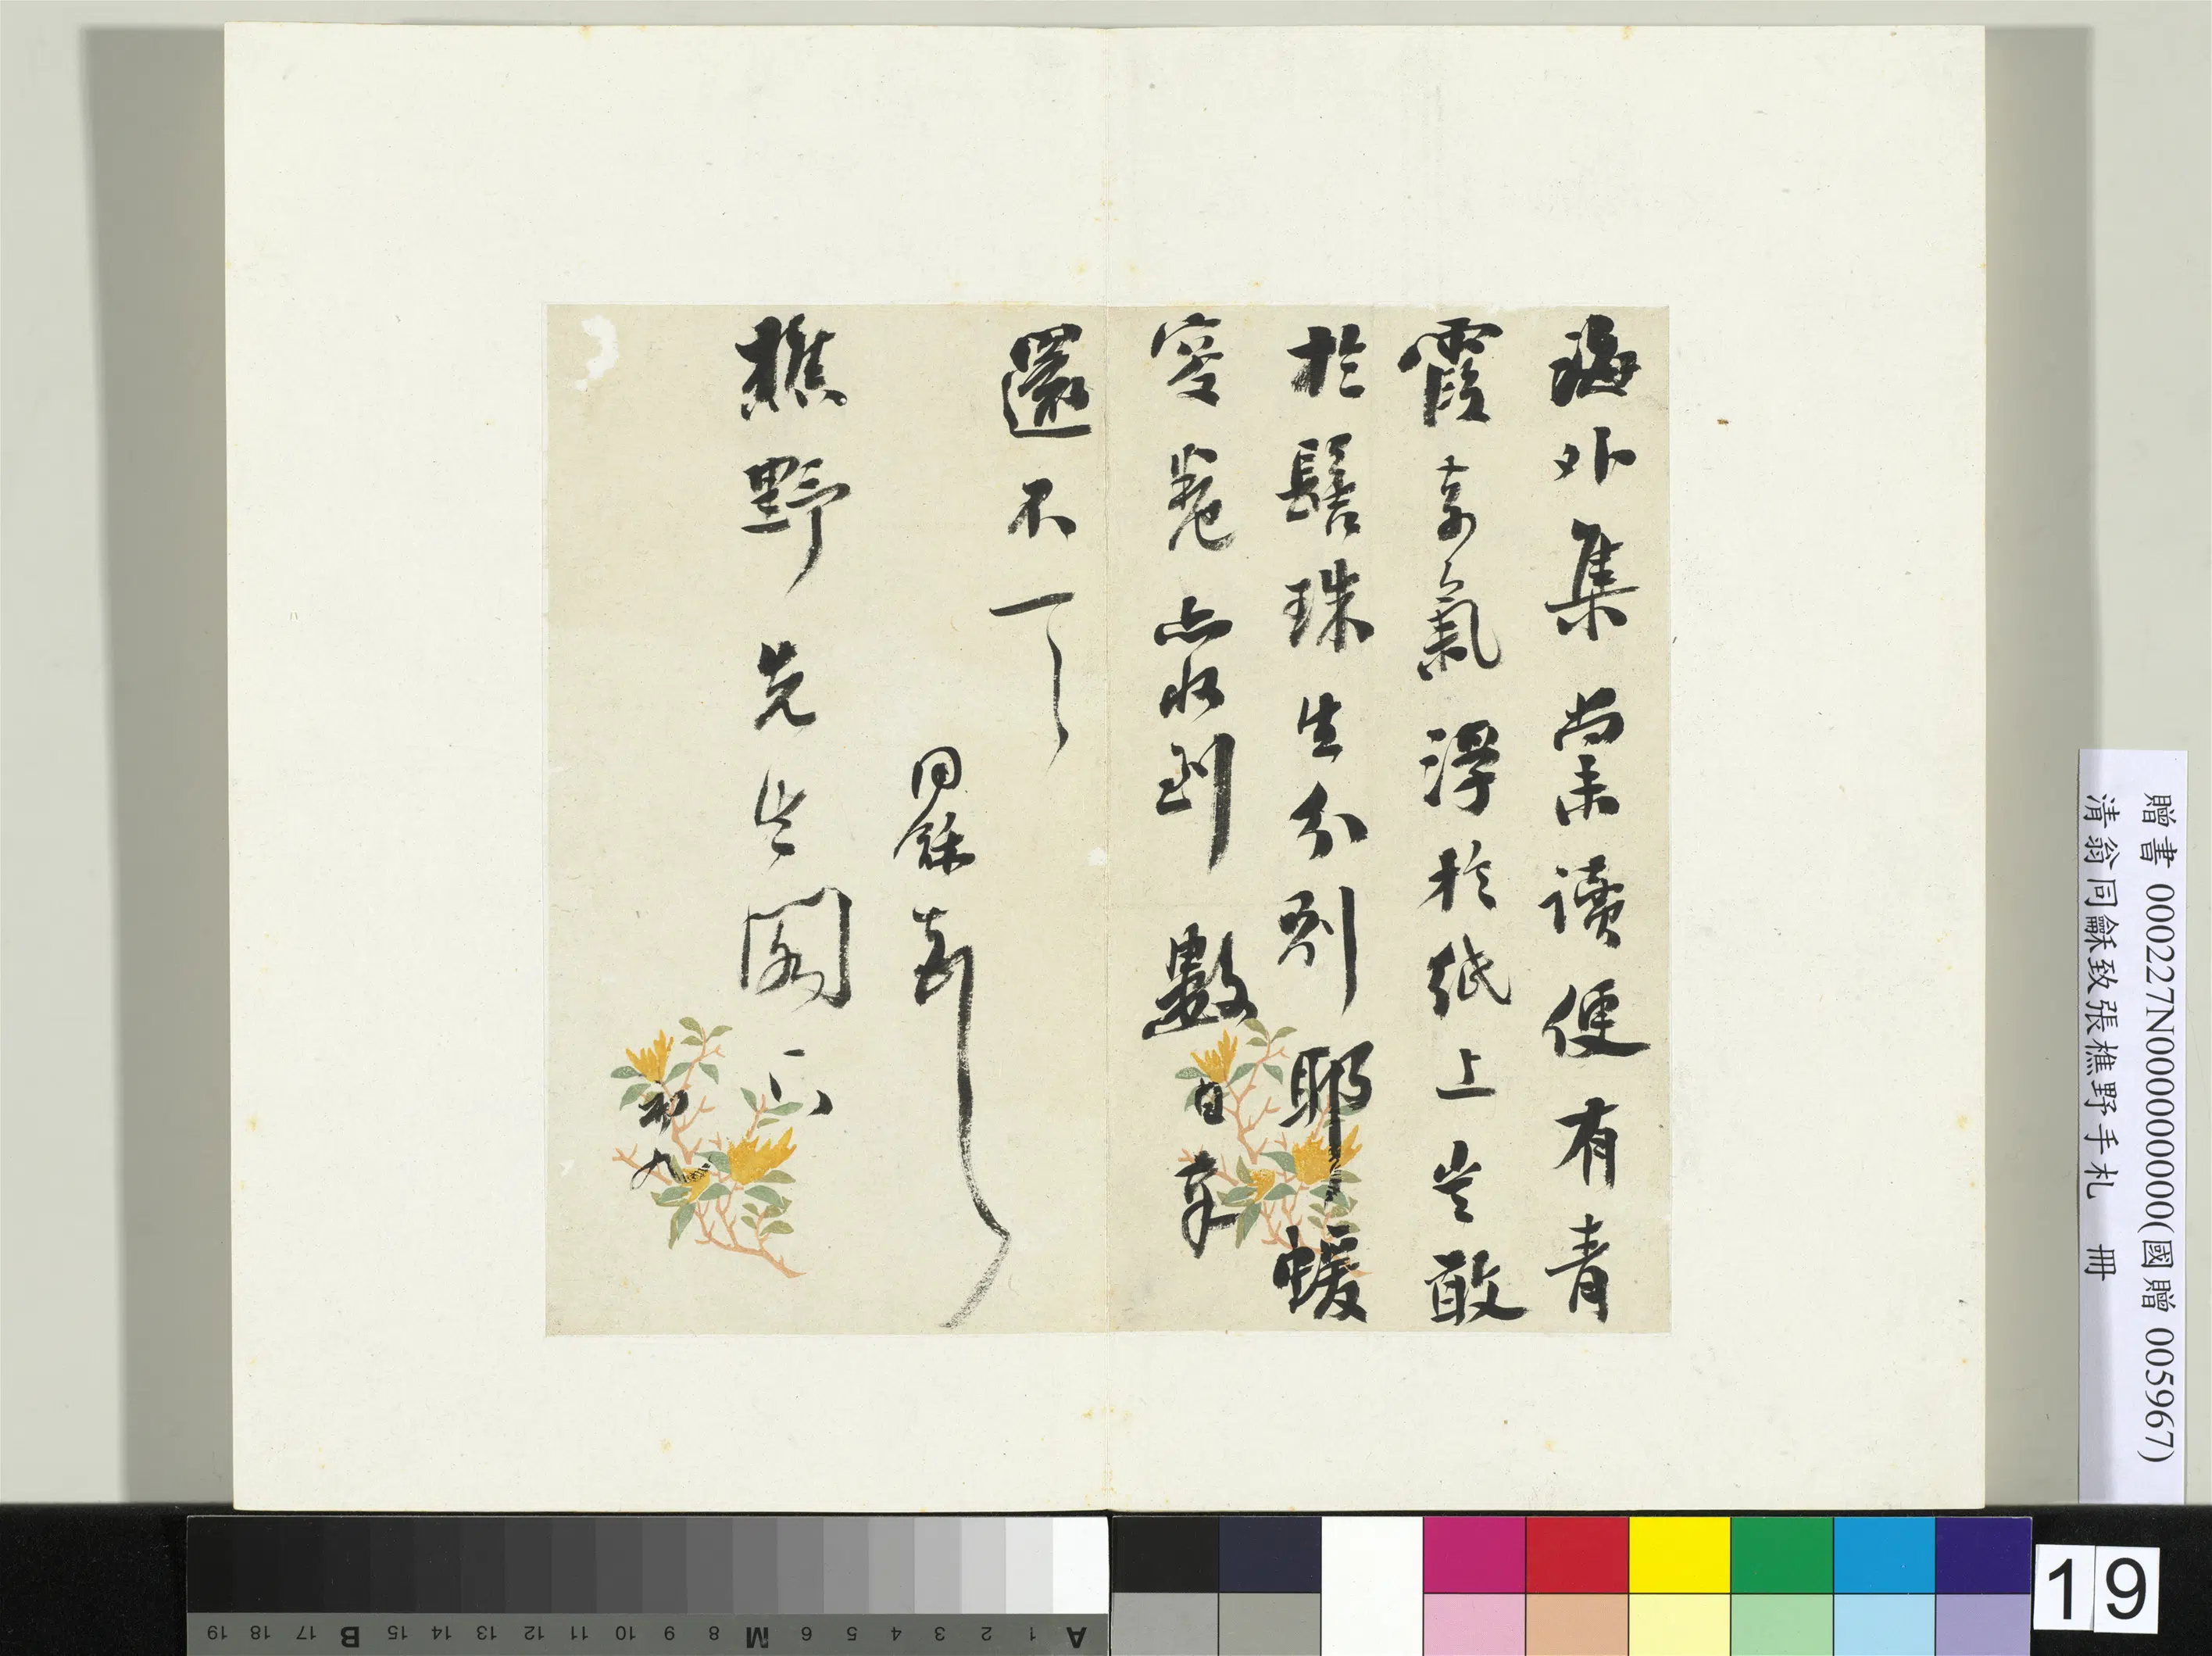 海外集尚未讀便有青
霞奇氣浮於紙上豈敢
於髻珠生分別耶蝯
叟卷亦收到數日奉
還不一一
同龢頓首
樵野先生閣下
初九
贈書 000227N000000000(國贈 005967)
清翁同龢致張樵野手札 冊
19
A 1 2 3 4 5 6 M 8 9 10 11 12 13 14 15 B 17 18 19